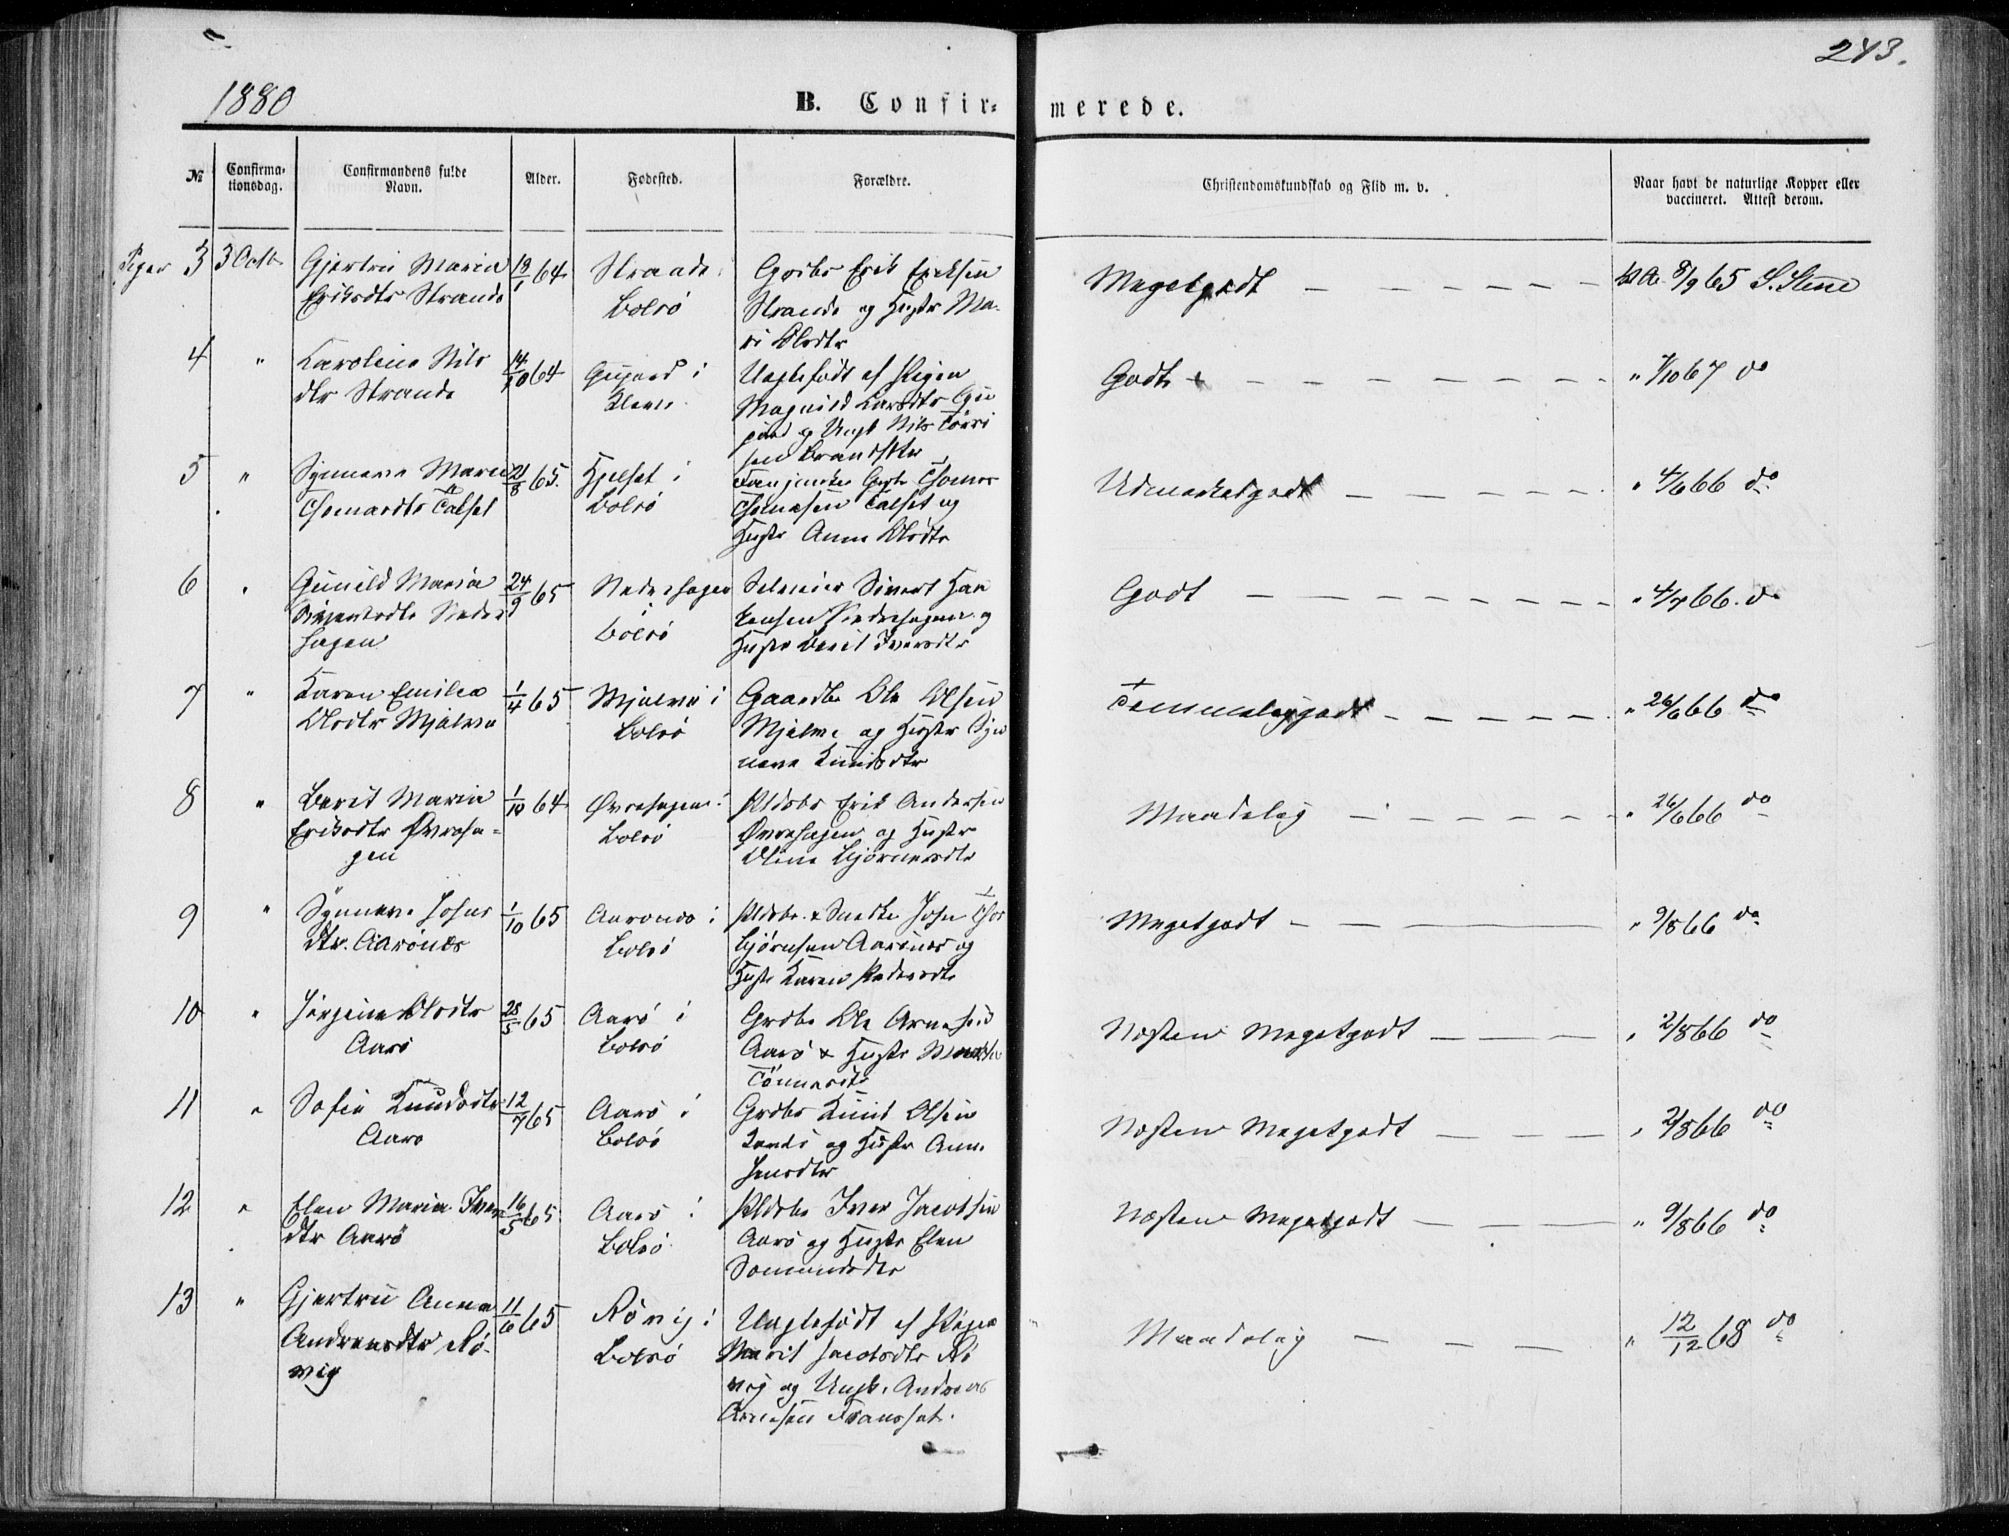 243.
1880
B. Confir-
merede.
№
Confirma-
tionsdag.
Confirmandens fulde
Navn.
Alder.
Fødested.
Forældre.
Christendomskundskab og Flid m. v.
Naar havt de naturlige Kopper eller
vaccineret. Attest derom.
Piger 3 3 Octb
Gjertru Maria
Eriksdtr Strande
13/1 64
Strande
Bolsø
Grdbr Erik Eriksen
Strande og Hustr Ma-
ri Olsdtr
Megetgodt
8/9 65 S. Stene
4 "
Karoline Nils
dtr Strande
14/10 64
i
Uægtefødt af Pigen
Magnild Larsdtr
og Ungk Nils
sen
Godt
" 7/10 67 do
5 "
Synneve Marie
Thomasdtr Talset
21/8 65.
Hjelset i
Bolsø
Thomas
Thomasen Talset og
Hustr Anne Olsdtr
Udmærketgodt
" 4/6 66 do
6 "
Gunild Maria
Sivertsdtr Neder
hagen
24/9 65
Nederhagen
i
Bolsø
Selveier Sivert Han
sen Nederhagen og
Hustr Berit Iversdtr
Godt
" 4/7 66. do
7 "
Karen Emilie
Olsdtr Mjelve
1/4 65
Mjelve i
Bolsø
Gaardbr Ole Olsen
Mjelve og Hustr Syn
neve Knudsdtr
Temmeliggodt
" 26/6 66 do
8 "
Berit Maria
Eriksdtr Øvreha-
gen
1/10 64
Øvrehagen i
Bolsø
Pldsbr Erik Andersen
Øvrehagen og Hustr
Oline Bjørnersdtr
Maadelig
" 26/6 66 do
9 "
Synneve Johns
dtr. Aarønes
1/10 65
Aarønes i
Bolsø
Pldsbr. & Snedker John Thor
bjørnsen Aarønes og
Hustr Karen Pedersdtr
Megetgodt
" 9/8 66 do
10 "
Jørgine Olsdtr
Aarø
28/5 65
Aarø i
Bolsø
Grdbr Ole Arnesen
Aarø & Hustr
Tønnesdtr
Næsten Megetgodt
" 2/8 66 do
11 "
Sofie Knudsdtr
Aarø
12/7 65
Aarø i
Bolsø
Grdbr Knud Olsen
og Hustr Anne
Jensdtr
Næsten Megetgodt
" 2/8 66 do
12 "
Elen Maria Iver
dtr Aarø
16/5 65
Aarø i
Bolsø
Pldsbr Iver Jacobsen
Aarø og Hustr Elen
Næsten Megetgodt
" 9/8 66 do
13 "
Gjertru Anna
Andreasdtr Rø-
vig
11/6 65
Røvig i
Bolsø
Uægtefødt af Pigen
Marit Jacobsdtr Rø
vig og Ungk. Andreas
Arnesen Franset.
Maadelig
" 12/12 68 do